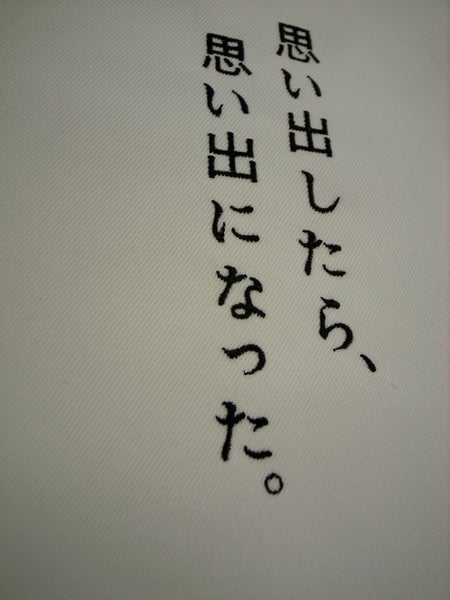 思い出したら、
思い出になった。